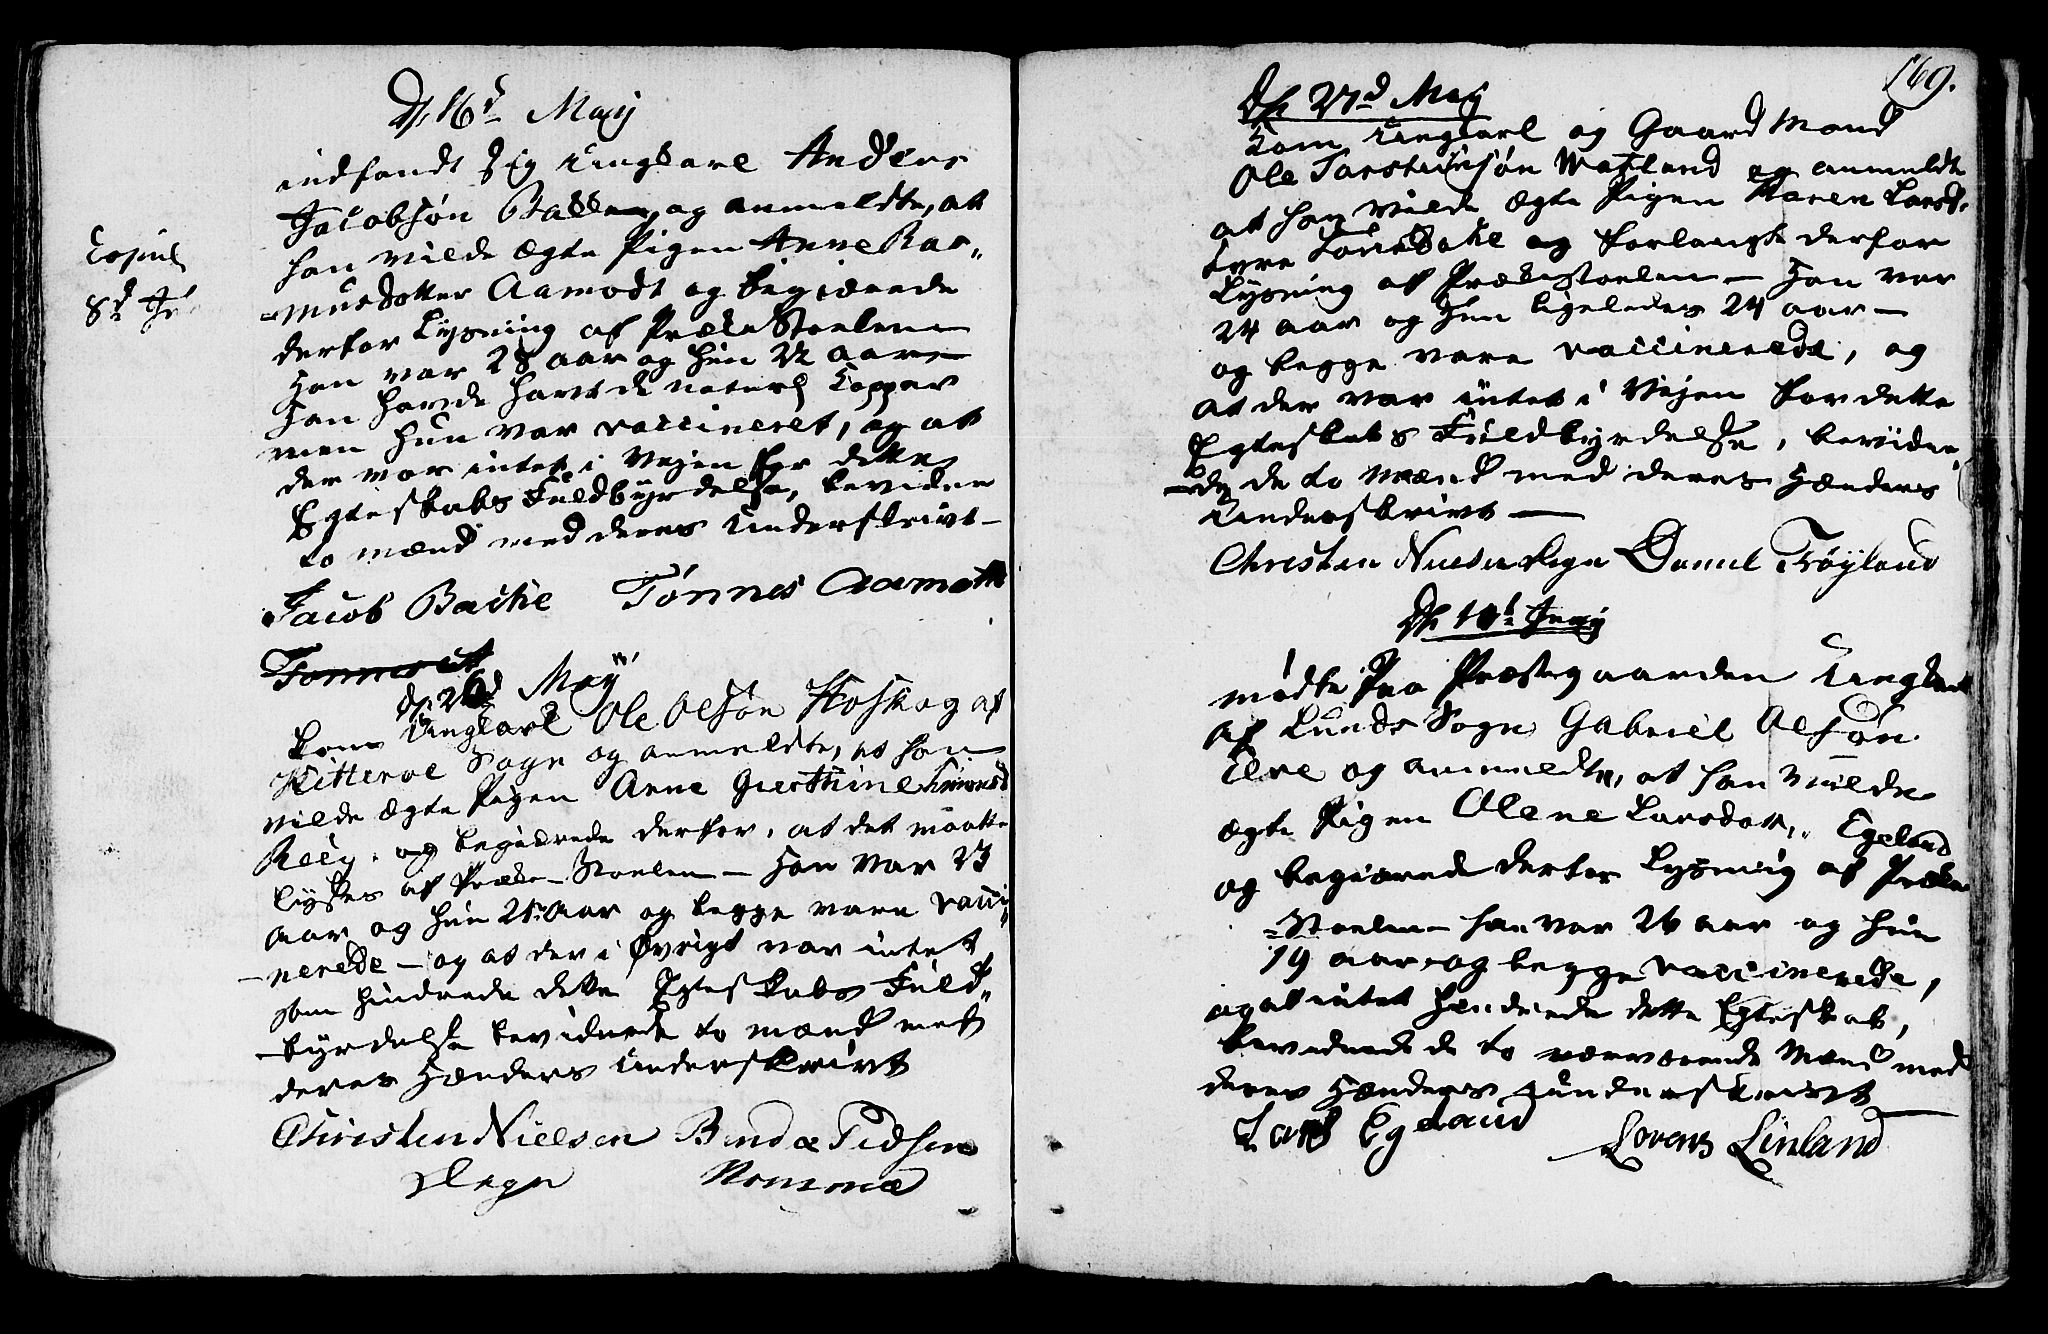 D. 16d Maij
indfandt sig Ungkarl Anders
Jacobsøn Bakke, og anmeldte, at
han vilde ægte Pigen Anne Ras-
musdotter Aamodt og begiærede
derfor Lysning af PrækeStoelen
Han var 28 aar og hun 22 aar
Han havde havt de naturl Kopper
men hun var vaccineret, og at
der var intet i Vejen for dette
Egteskabs Fuldbyrdelse, bevidne
to mænd med deres Underskrivt -
Jacob Bache Tønnes Aamodt
D. 26d Maij
kom Ungkarl Ole Olsøn Hoskog af
Hitterøe Sogn og anmeldte, at han
vilde ægte Pigen Anne Gierthine Simonsd
Røeg. og begiærede derfor, at det maatte
lyses af Præke-Stoelen - Han var 23
aar og hun 21 Aar og begge vare vacci
nerede - og at der i Øvrigt var intet
som hindrede dette Egteskabs Fuld
byrdelse bevidnede to mænd med
deres Hænders Underskrivt
Christen Nielsen
Degn
8d
169.
D. 27d Maij
Kom Ungkarl og Gaard Mand
Ole Torstensøn Watland og anmeldte
at han vilde ægte Pigen Maren Larsd.
og forlangte derfor
Lysning af Prækestoelen - Han var
24 aar og Hun ligeledes 24 aar -
og begge vare vaccinerede, og
at der var intet i Vejen for dette
Egteskabs Fuldbyrdelse, bevidne
de to mænd med deres Hænders
Underskrivt -
Christen Nielsen Degn Daniel Trøyland
mødte paa Præstegaarden Ungkarl
af Lunds Sogn Gabriel Olsøn
Eeve og anmeldte, at han vilde
ægte Pigen Olene Larsdatt, Egeland
og begiærede derfor Lysning af Præke
Stoelen - han var 26 aar og hun
19 aar og begge vaccinerede,
og at intet hindrede dette Egteskab,
bevidnede de to nærværende Mænd med
deres Hænders Underskrivt
Lars Egeland Lorens Linland